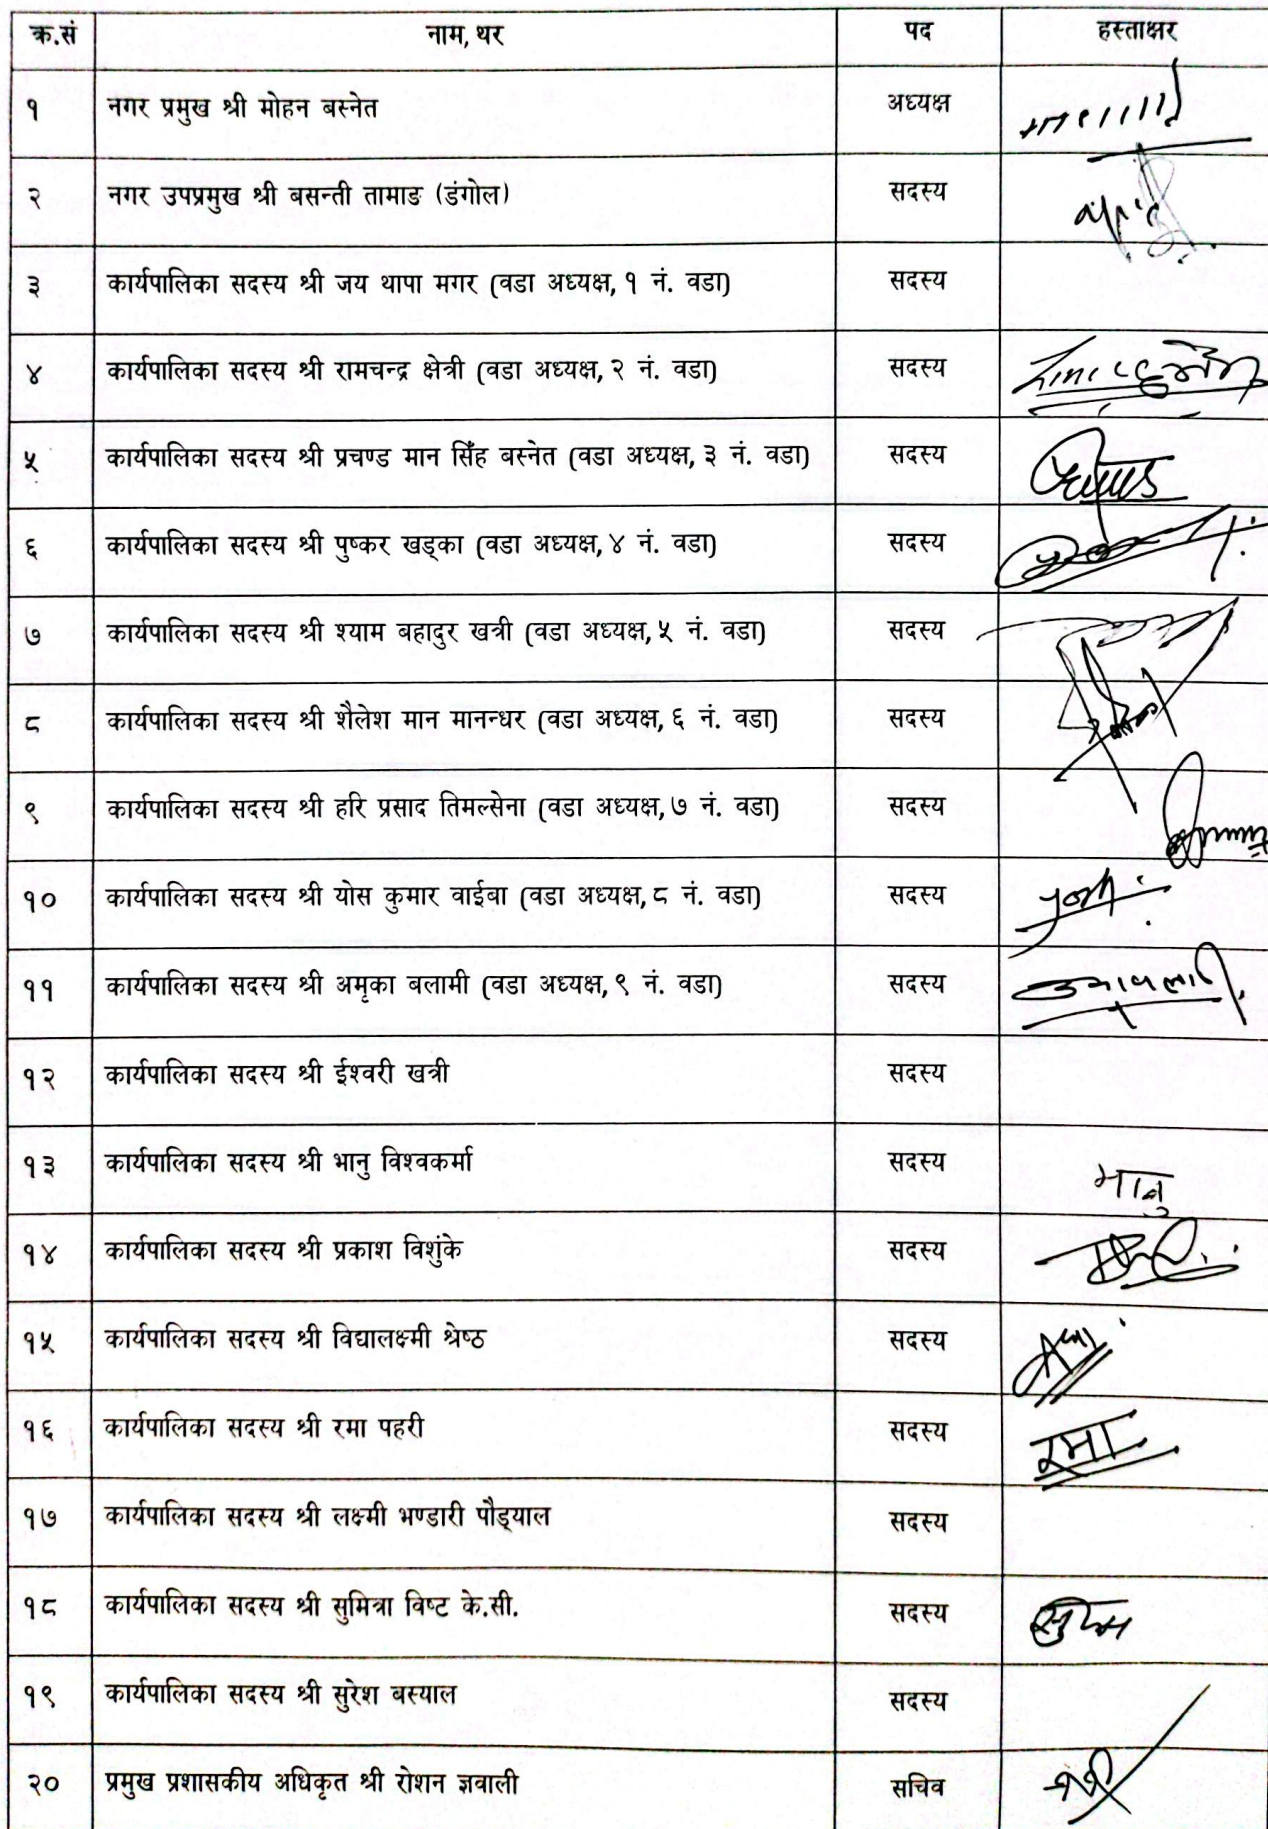 क्र.सं नाम, थर पद हस्ताक्षर
१ नगर प्रमुख श्री मोहन बस्नेत अध्यक्ष
२ नगर उपप्रमुख श्री बसन्ती तामाङ (डंगोल) सदस्य
३ कार्यपालिका सदस्य श्री जय थापा मगर (वडा अध्यक्ष, १ नं. वडा) सदस्य
४ कार्यपालिका सदस्य श्री रामचन्द्र क्षेत्री (वडा अध्यक्ष, २ नं. वडा) सदस्य
५ कार्यपालिका सदस्य श्री प्रचण्ड मान सिंह बस्नेत (वडा अध्यक्ष, ३ नं. वडा) सदस्य
६ कार्यपालिका सदस्य श्री पुष्कर खड्का (वडा अध्यक्ष, ४ नं. वडा) सदस्य
७ कार्यपालिका सदस्य श्री श्याम बहादुर खत्री (वडा अध्यक्ष, ५ नं. वडा) सदस्य
८ कार्यपालिका सदस्य श्री शैलेश मान मानन्धर (वडा अध्यक्ष, ६ नं. वडा) सदस्य
९ कार्यपालिका सदस्य श्री हरि प्रसाद तिमल्सेना (वडा अध्यक्ष, ७ नं. वडा) सदस्य
१० कार्यपालिका सदस्य श्री योस कुमार वाईबा (वडा अध्यक्ष, ८ नं. वडा) सदस्य
११ कार्यपालिका सदस्य श्री अमृका बलामी (वडा अध्यक्ष, ९ नं. वडा) सदस्य
१२ कार्यपालिका सदस्य श्री ईश्वरी खत्री सदस्य
१३ कार्यपालिका सदस्य श्री भानु विश्वकर्मा सदस्य भानु
१४ कार्यपालिका सदस्य श्री प्रकाश विशुंके सदस्य
१५ कार्यपालिका सदस्य श्री विद्यालक्ष्मी श्रेष्ठ सदस्य
१६ कार्यपालिका सदस्य श्री रमा पहरी सदस्य रमा
१७ कार्यपालिका सदस्य श्री लक्ष्मी भण्डारी पौड्याल सदस्य
१८ कार्यपालिका सदस्य श्री सुमित्रा विष्ट के.सी. सदस्य
१९ कार्यपालिका सदस्य श्री सुरेश बस्याल सदस्य
२० प्रमुख प्रशासकीय अधिकृत श्री रोशन ज्ञवाली सचिव